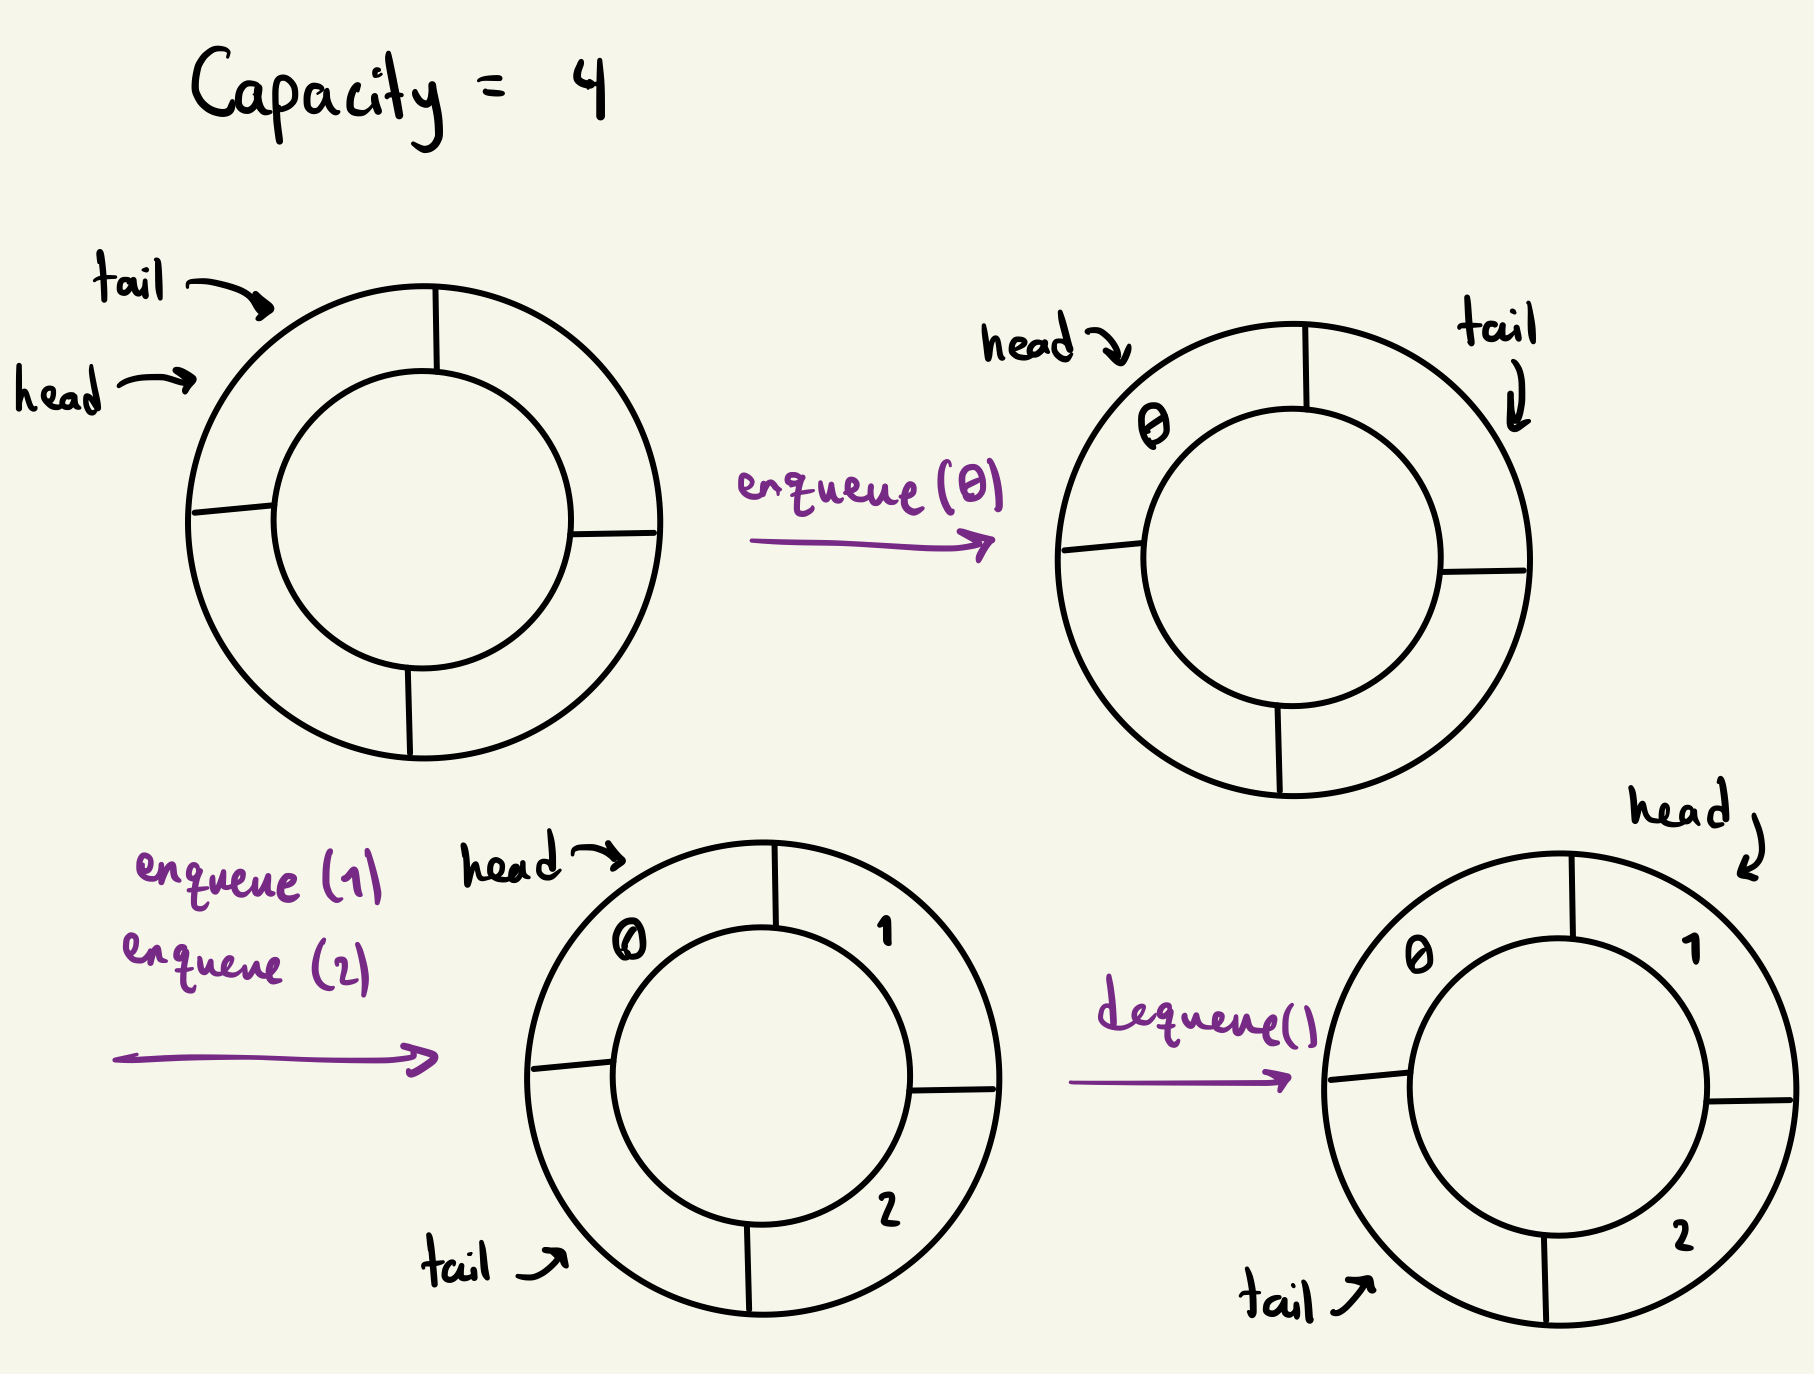 Capacity = 4
tail
head
head
tail
0
enqueue (0)
enqueue (1)
enqueue (2)
head
0
1
2
tail
dequeue()
head
0
1
2
tail